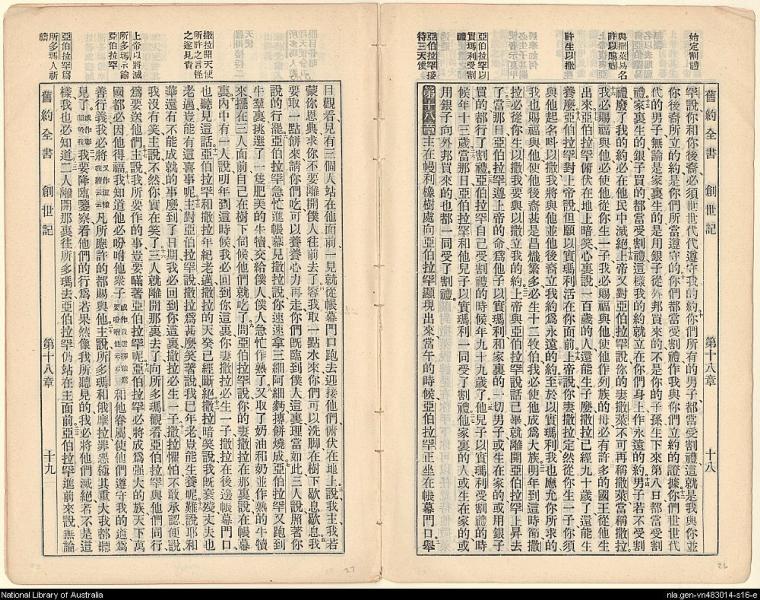 始定割禮
與撒萊易名
許以賜福
許生以撒
亞伯拉罕以
實瑪利受割
禮
亞伯拉罕接
待三天使
舊約全書 創世記 第十八章 十八
罕說你和你後裔必須世世代代遵守我的約你們所有的男子都當受割禮這就是我與你並
你後裔所立的約是你們所當遵守的你們都當受割禮作我與你們立約的證據你們世世代
代的男子無論是家裏生的是用銀子從外邦買來的不是你的子孫生下來第八日都當受割
禮家裏生的銀子買的都當受割禮這樣我的約就立在你們身上作永遠的約男子若不受割
禮廢了我的約必在他民中滅絕上帝又對亞伯拉罕說你的妻撒萊不可再稱撒萊當稱撒拉
我必賜福與他也必使他從你生一子我必賜福與他使他作列族的母必有許多的國王從他生
出來亞伯拉罕俯伏在地上暗笑心裏說一百歲的人還能生子麼撒拉已經九十歲了還能生
養麼亞伯拉罕對上帝說但願以實瑪利活在你面前上帝說你妻撒拉必然從你生一子你須
與他起名叫以撒我將與他並他後裔立我約爲永遠的約至於以實瑪利我也應允你所求的
我也賜福與他使他後裔甚是昌熾繁多必生十二牧伯我必使他成爲大族明年到這時節撒
拉必從你生以撒我要與以撒立我的約上帝與亞伯拉罕說話已畢就離開亞伯拉罕上昇去
了當那日亞伯拉罕遵上帝的命爲他子以實瑪利和家裏的一切男子或生在家的或用銀子
買的都行了割禮亞伯拉罕自己受割禮的時候年九十九歲了他兒子以實瑪利受割禮的時
候年十三歲當那日亞伯拉罕和他兒子以實瑪利一同受了割禮他家裏的人或生在家的或
用銀子向外邦買來的也都一同受了割禮
第十八章 主在幔利橡樹處向亞伯拉罕顯現出來當午的時候亞伯拉罕正坐在帳幕門口舉
撒拉聞天使
所許之言怪
之遂見責
上帝以將滅
所多瑪示諭
亞伯拉罕
亞伯拉罕爲
所多瑪人祈
禱
目觀看見有三個人站在他面前一見就從帳幕門口跑去迎接他們俯伏在地上說我主我若
蒙你恩典求你不要離開僕人往前去了容我取一點水來你們可以洗脚在樹下歇息歇息我
要取一點餅來請你們吃可以養養心力再走你們既臨到僕人這裏理當如此三人說照著你
說的行罷亞伯拉罕急忙進帳幕見撒拉說你速速拿三細阿細麪摶餅燒成亞伯拉罕又跑到
牛羣裏挑選了一隻肥美的牛犢交給僕人僕人急忙作熟了又取了奶油和奶並作熟的牛犢
來擺在三人面前自己在樹下伺候他們就吃了問亞伯拉罕說你的妻撒拉在那裏說在帳幕
裏內中有一人說明年到這時候我必回到你這裏你妻撒拉必生一子撒拉在後邊帳幕門口
也聽見這話亞伯拉罕和撒拉年紀老邁撒拉的天癸已經斷絕撒拉暗笑說我既衰殘丈夫也
老邁豈能有這喜事呢主對亞伯拉罕說撒拉爲甚麼笑著說我已年老果然能生養呢難道耶和
華還有不能成就的事麼到了日期我必回到你這裏撒拉必生一子撒拉懼怕不敢承認便說
我沒有笑主說不然你實在笑了三人就離開那裏去了向所多瑪觀看亞伯拉罕與他們同行
爲要送他們主說我所要作的事豈要瞞著亞伯拉罕呢亞伯拉罕必將成爲強大的族天下萬
國都必因他得福我知道他必吩咐他衆子和他眷屬使他們遵守我的道爲
善行義我必將凡所應許的都賜與他主說所多瑪和俄摩拉罪惡極其重大我都聽
見了我要降臨鑒察看他們的行爲若果然像我所聽見的我必將他們滅絕若不是這
樣我也必知道二人離開那裏往所多瑪去亞伯拉罕仍站在主面前亞伯拉罕進前來說無論
舊約全書 創世記 第十八章 十九
National Library of Australia
nla.gen-vn483014-s16-e